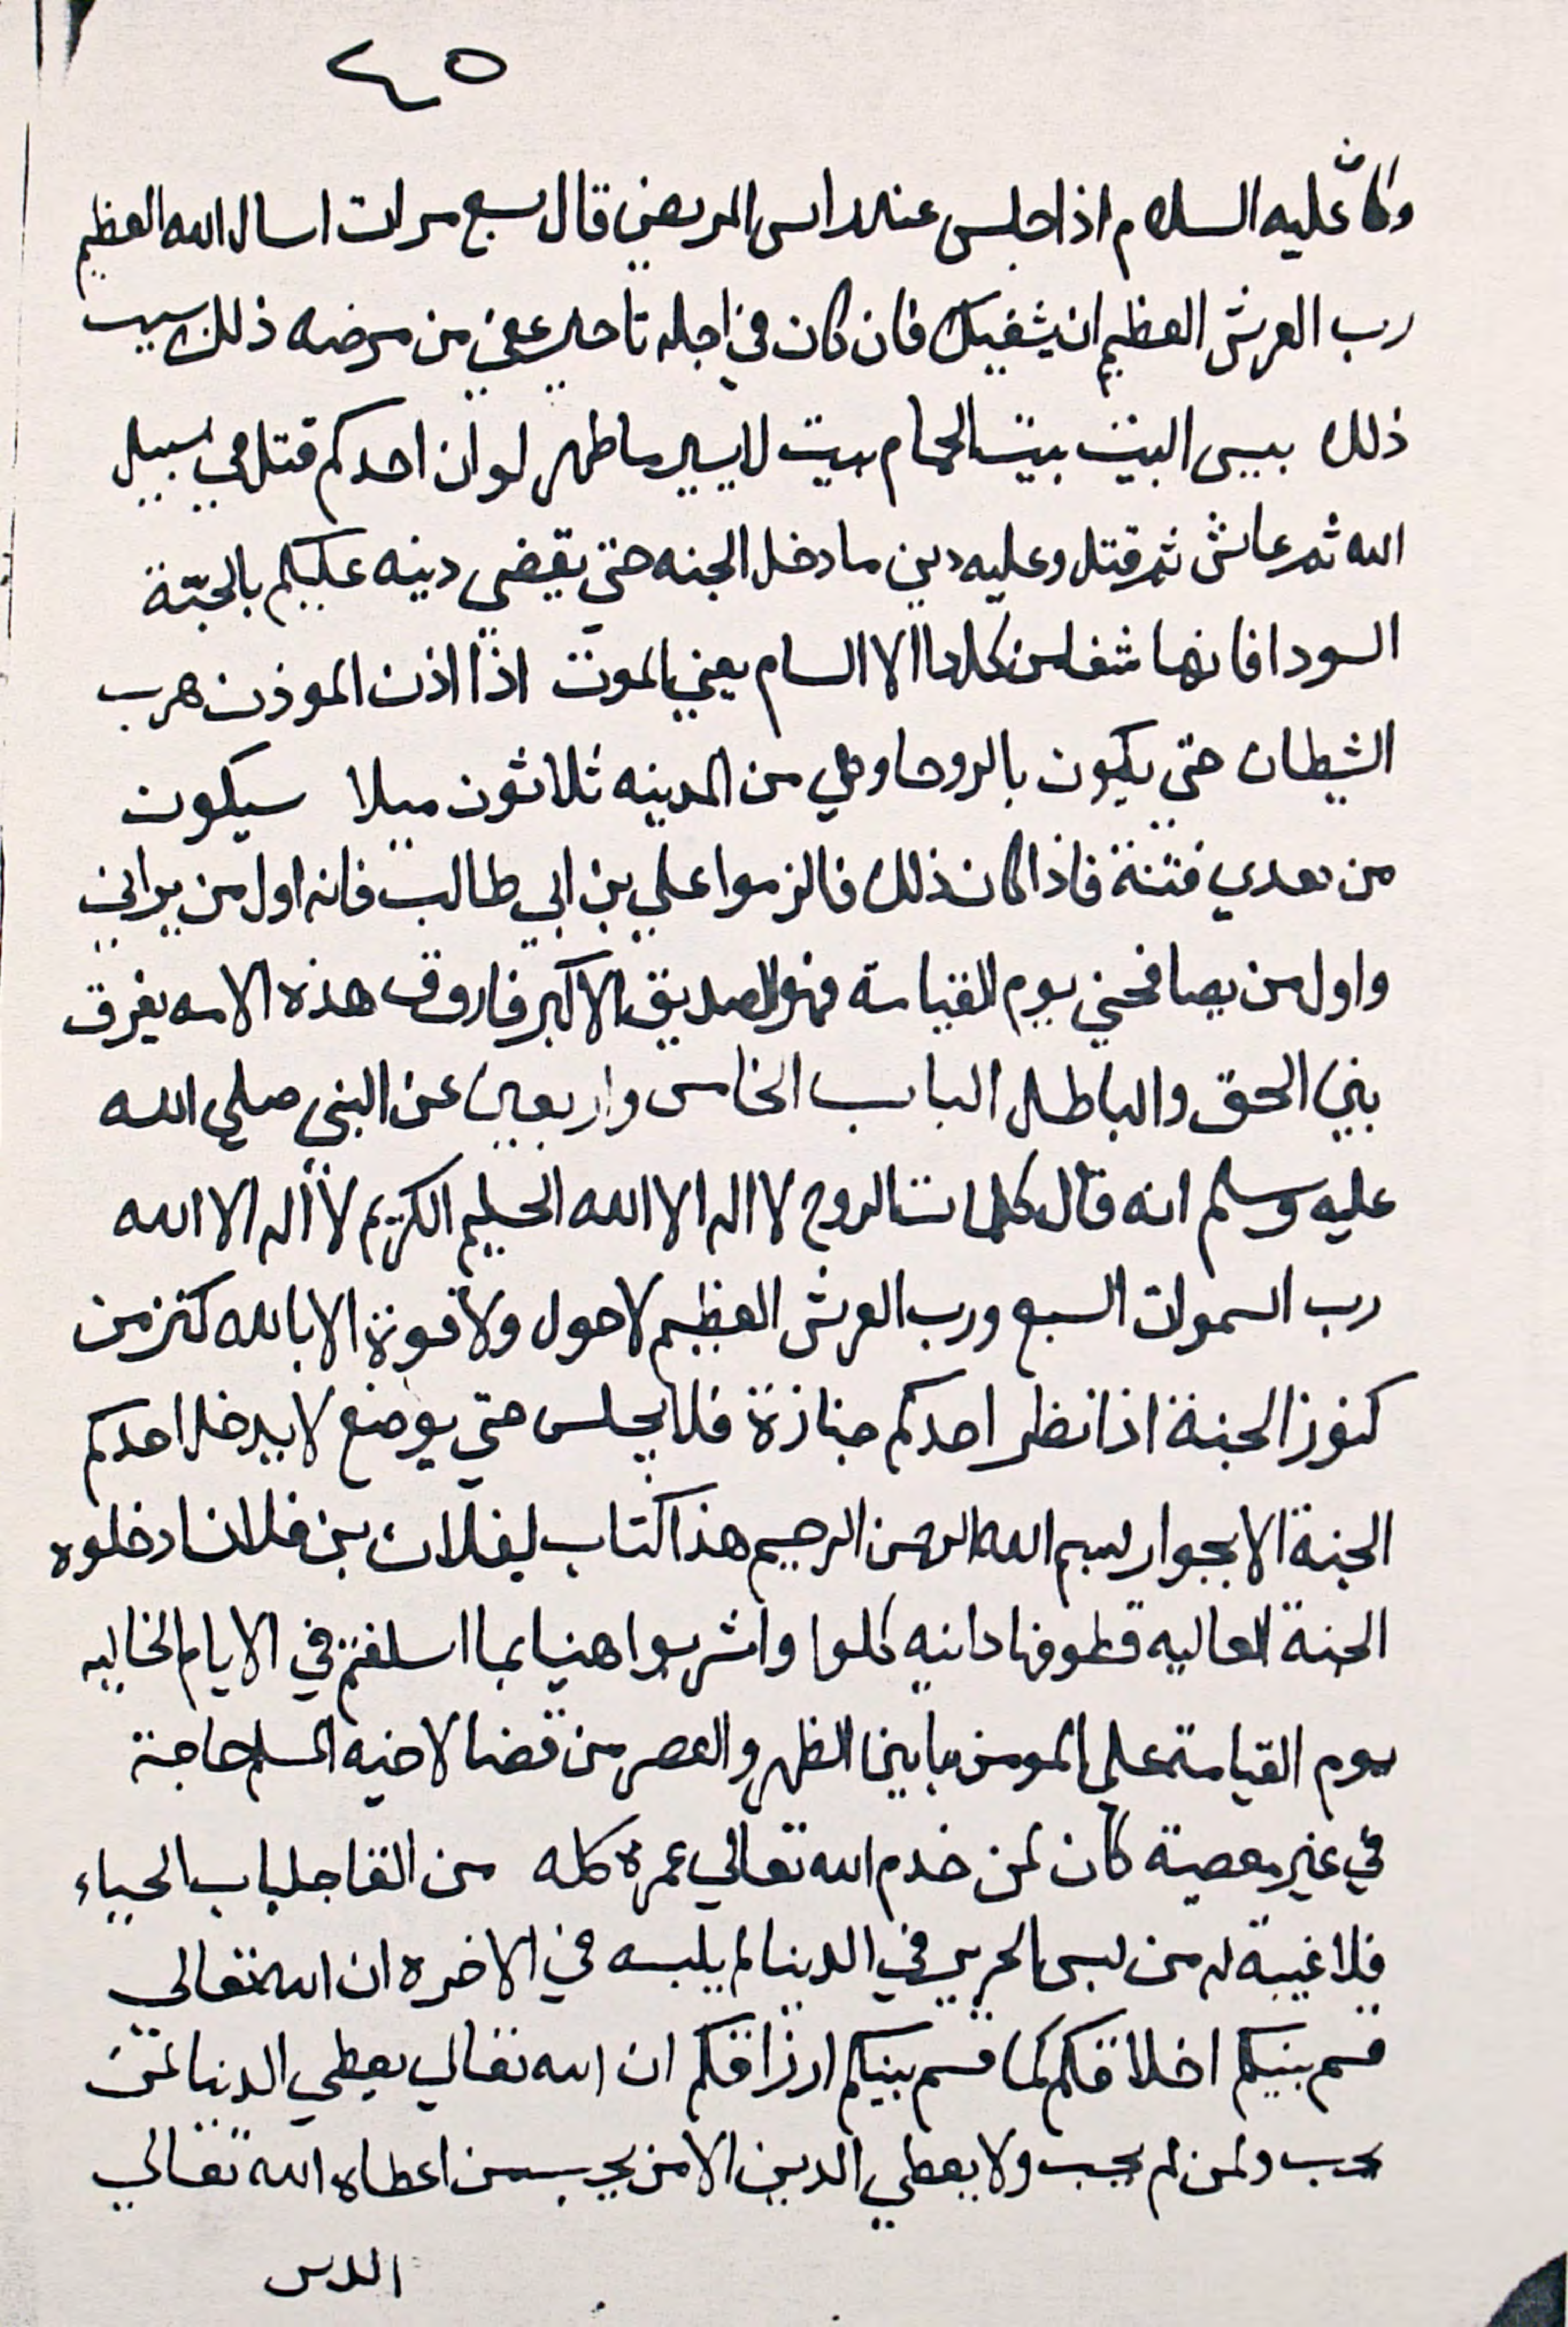 ٤٥
وكان عليه السلام اذا جلس عند راس المريض قال سبع مرات اسال الله العظيم
رب العرش العظيم ان يشفيك فان كان في اجله تاخير عفي من مرضه ذلك سبب
ذلك بيس البيت بيت الحمام بيت لا يسير ما طهر لو ان احدكم قتل في سبيل
الله ثم عاش ثم قتل وعليه دين ما دخل الجنه حتي يقضي دينه عليكم بالحبّة
السودا فانها شفا من كل دا الا السام يعني الموت اذا اذن الموذن هرب
الشيطان حتي يكون بالروحا وهي من المدينه ثلاثون ميلا سيكون
من بعدي فتنة فاذا كان ذلك فالزموا علي بن ابي طالب فانه اول من يراني
واول من يصافحني يوم القيامة فهو الصديق الاكبر فاروق هذه الامه يفرق
بين الحق والباطل الباب الخامس واربعين عن النبي صلي الله
عليه وسلم انه قال كلمات الروح لا اله الا الله الحليم الكريم لا اله الا الله
رب السموات السبع ورب العرش العظيم لا حول ولا قوة الا بالله كنز من
كنوز الجنة اذا نظر احدكم جنازة فلا يجلس حتي يوضع لا يدخل احدكم
الجنة الا بجوار بسم الله الرحمن الرحيم هذا كتاب لفلان بن فلان ادخلوه
الجنة العاليه قطوفها دانيه كلوا واشربوا هنيا بما اسلفتم في الايام الخاليه
يوم القيامة علي المومن ما بين الظهر والعصر من قضا لاخيه المسلم حاجة
في غير معصية كان لمن خدم الله تعالي عمره كله من القا جلباب الحياء
فلا غيبة له من لبس الحرير في الدنيا لم يلبسه في الاخره ان الله تعالي
قسم بينكم اخلاقكم كما قسم بينكم ارزاقكم ان الله تعالي يعطي الدنيا لمن
يحب ولمن لم يحب ولا يعطي الدين الا من يحب من اعطاه الله تعالي
الدين